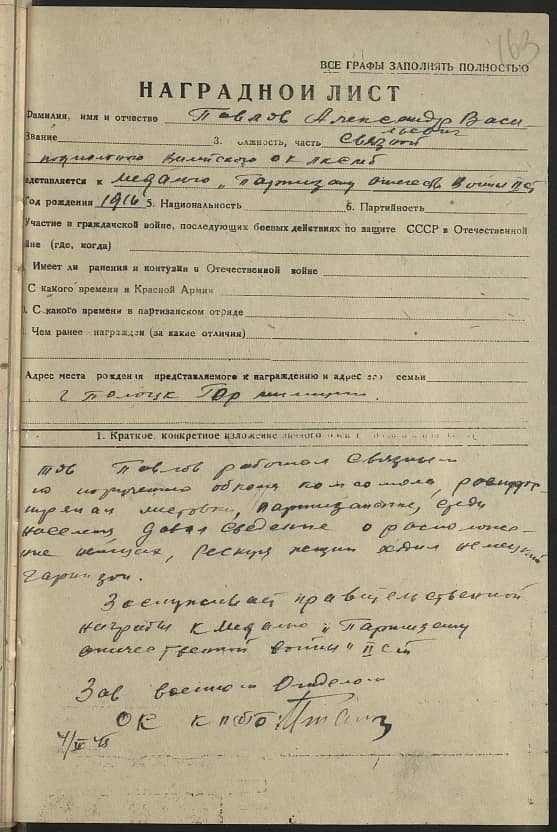 163
ВСЕ ГРАФЫ ЗАПОЛНЯТЬ ПОЛНОСТЬЮ
НАГРАДНОЙ ЛИСТ
Фамилия, имя и отчество Павлов Александр Васи
льевич
Звание 3. олжность, часть связной
подпольного ОК ЛКСМБ
едставляется к медалью „Партизану отечеств войны" II ст
Год рождения 1916 5. Национальность 6. Партийность
Участие в гражданской войне, последующих боевых действиях по защите СССР в Отечественной
йне (где, когда)
Имеет ли ранения и контузии в Отечественной войне
С какого времени в Красной Армии
С какого времени в партизанском отряде
Чем ранее награжден (за какие отличия)
Адрес места рождения представляемого к награждению и адрес его семьи
г Полоцк Гор милиция
1. Краткое, конкретное изложение личного
тов Павлов работал связным
по поручению обкома комсомола, распрост
ранял листовки, среди
населения давал сведение о расположе-
ние немцах, ходил немецкий
гарнизон.
Заслуживает правительственной
награды к медалью „Партизану
отечественной войны" II ст
Зав военным Отделом
ОК КП(б)Б